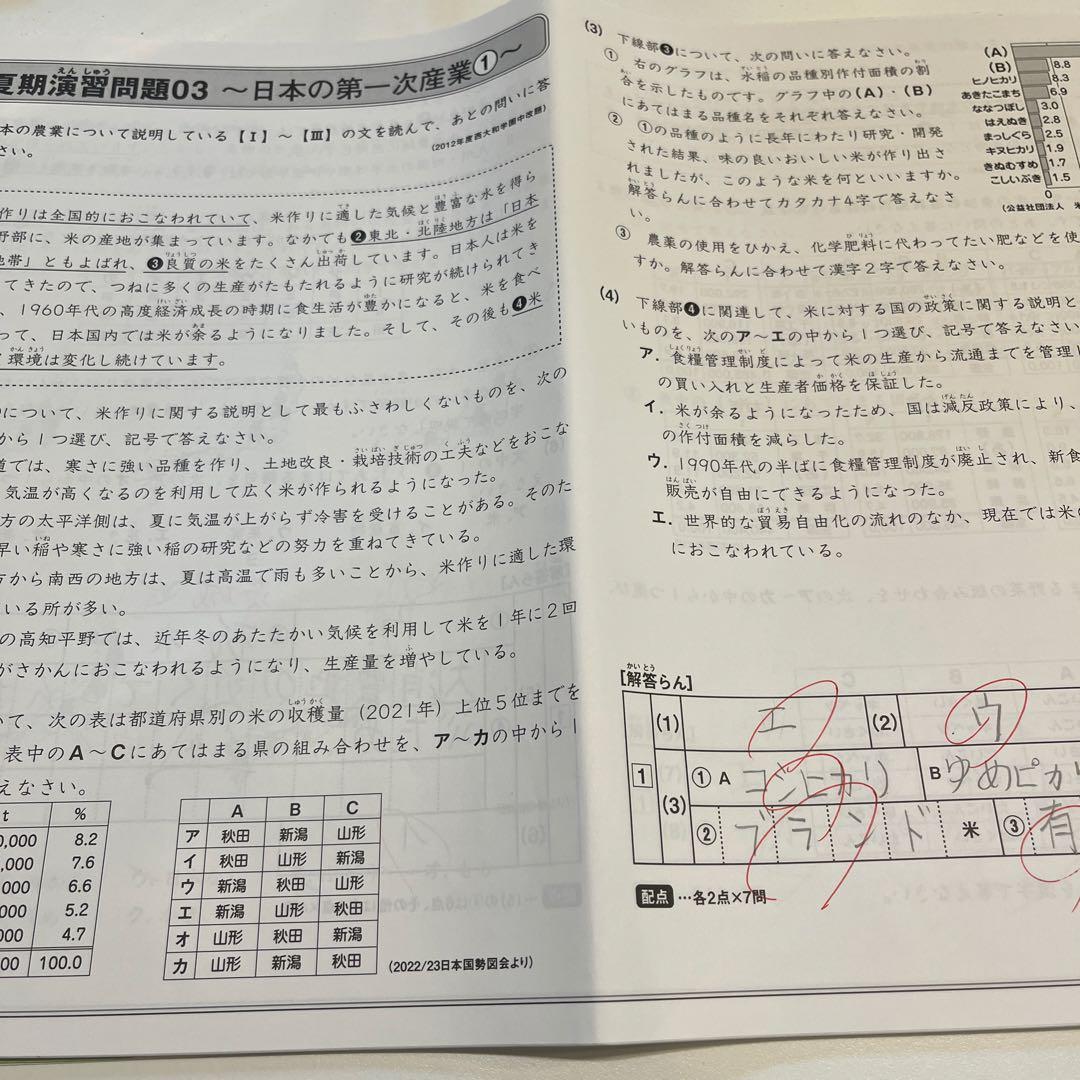 夏期演習問題03 ～日本の第一次産業①～
本の農業について説明している【Ⅰ】～【Ⅲ】の文を読んで、あとの問いに答
さい。
(2012年度西大和学園中改題)
作りは全国的におこなわれていて、米作りに適した気候と豊富な水を得ら
野部に、米の産地が集まっています。なかでも❷東北・北陸地方は「日本
地帯」ともよばれ、❸良質の米をたくさん出荷しています。日本人は米を
てきたので、つねに多くの生産がたもたれるように研究が続けられてき
、1960年代の高度経済成長の時期に食生活が豊かになると、米を食べ
って、日本国内では米が余るようになりました。そして、その後も❹米
環境は変化し続けています。
について、米作りに関する説明として最もふさわしくないものを、次の
から1つ選び、記号で答えなさい。
道では、寒さに強い品種を作り、土地改良・栽培技術の工夫などをおこな
気温が高くなるのを利用して広く米が作られるようになった。
方の太平洋側は、夏に気温が上がらず冷害を受けることがある。そのた
早い稲や寒さに強い稲の研究などの努力を重ねてきている。
方から南西の地方は、夏は高温で雨も多いことから、米作りに適した環
いる所が多い。
の高知平野では、近年冬のあたたかい気候を利用して米を1年に2回
がさかんにおこなわれるようになり、生産量を増やしている。
いて、次の表は都道府県別の米の収穫量（2021年）上位5位までを
表中のA～Cにあてはまる県の組み合わせを、ア～カの中から1
えなさい。
t %
0,000 8.2
,000 7.6
000 6.6
000 5.2
000 4.7
00 100.0
A B C
ア 秋田 新潟 山形
イ 秋田 山形 新潟
ウ 新潟 秋田 山形
エ 新潟 山形 秋田
オ 山形 秋田 新潟
カ 山形 新潟 秋田
(2022/23日本国勢図会より)
(3) 下線部❸について、次の問いに答えなさい。
① 右のグラフは、水稲の品種別作付面積の割
合を示したものです。グラフ中の(A)・(B)
にあてはまる品種名をそれぞれ答えなさい。
② ①の品種のように長年にわたり研究・開発
された結果、味の良いおいしい米が作り出さ
れましたが、このような米を何といいますか。
解答らんに合わせてカタカナ4字で答えなさ
い。
③ 農薬の使用をひかえ、化学肥料に代わってたい肥などを使
すか。解答らんに合わせて漢字2字で答えなさい。
(A)
(B) 8.8
ヒノヒカリ 8.3
あきたこまち 6.9
ななつぼし 3.0
はえぬき 2.8
まっしぐら 2.5
キヌヒカリ 1.9
きぬむすめ 1.7
こしいぶき 1.5
0
(公益社団法人 米
(4) 下線部❹に関連して、米に対する国の政策に関する説明と
いものを、次のア～エの中から1つ選び、記号で答えなさい
ア. 食糧管理制度によって米の生産から流通までを管理し
の買い入れと生産者価格を保証した。
イ. 米が余るようになったため、国は減反政策により、
の作付面積を減らした。
ウ. 1990年代の半ばに食糧管理制度が廃止され、新食
販売が自由にできるようになった。
エ. 世界的な貿易自由化の流れのなか、現在では米の
におこなわれている。
[解答らん]
1 (1) エ (2) ウ
(3) ① A コシヒカリ B ゆめピカ
② ブランド 米 ③ 有
配点 …各2点×7問